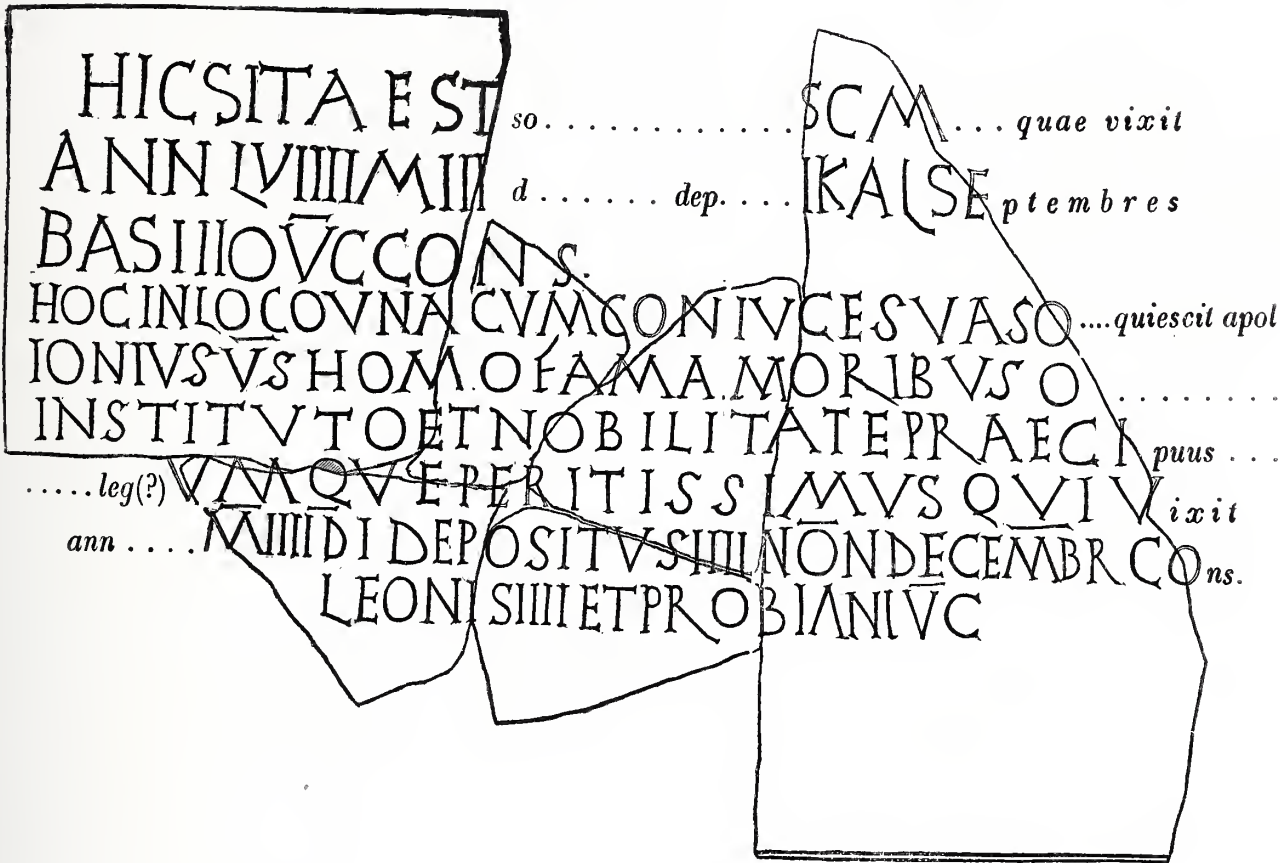 HIC SITA EST so.............SCM...quae vixit
ANN LVIIIIMIII d.......dep....IKALSEptembres
BASIIIOV̅CCONS.
HOC INLOCOVNA CVMCONIVGESVASO....quiescit apol
IONIVSV̅SHOMOFAMAMORIBVSO.........
INSTITVTOETNOBILITATEPRAECIpuus...
.....leg(?)VMQVEPERITISSIMVSQVIVixit
ann....MIIIIDIDEPOSITVSIIIINO̅NDECEMBRCOns.
LEONISIIIIETPROBIANIV̅C